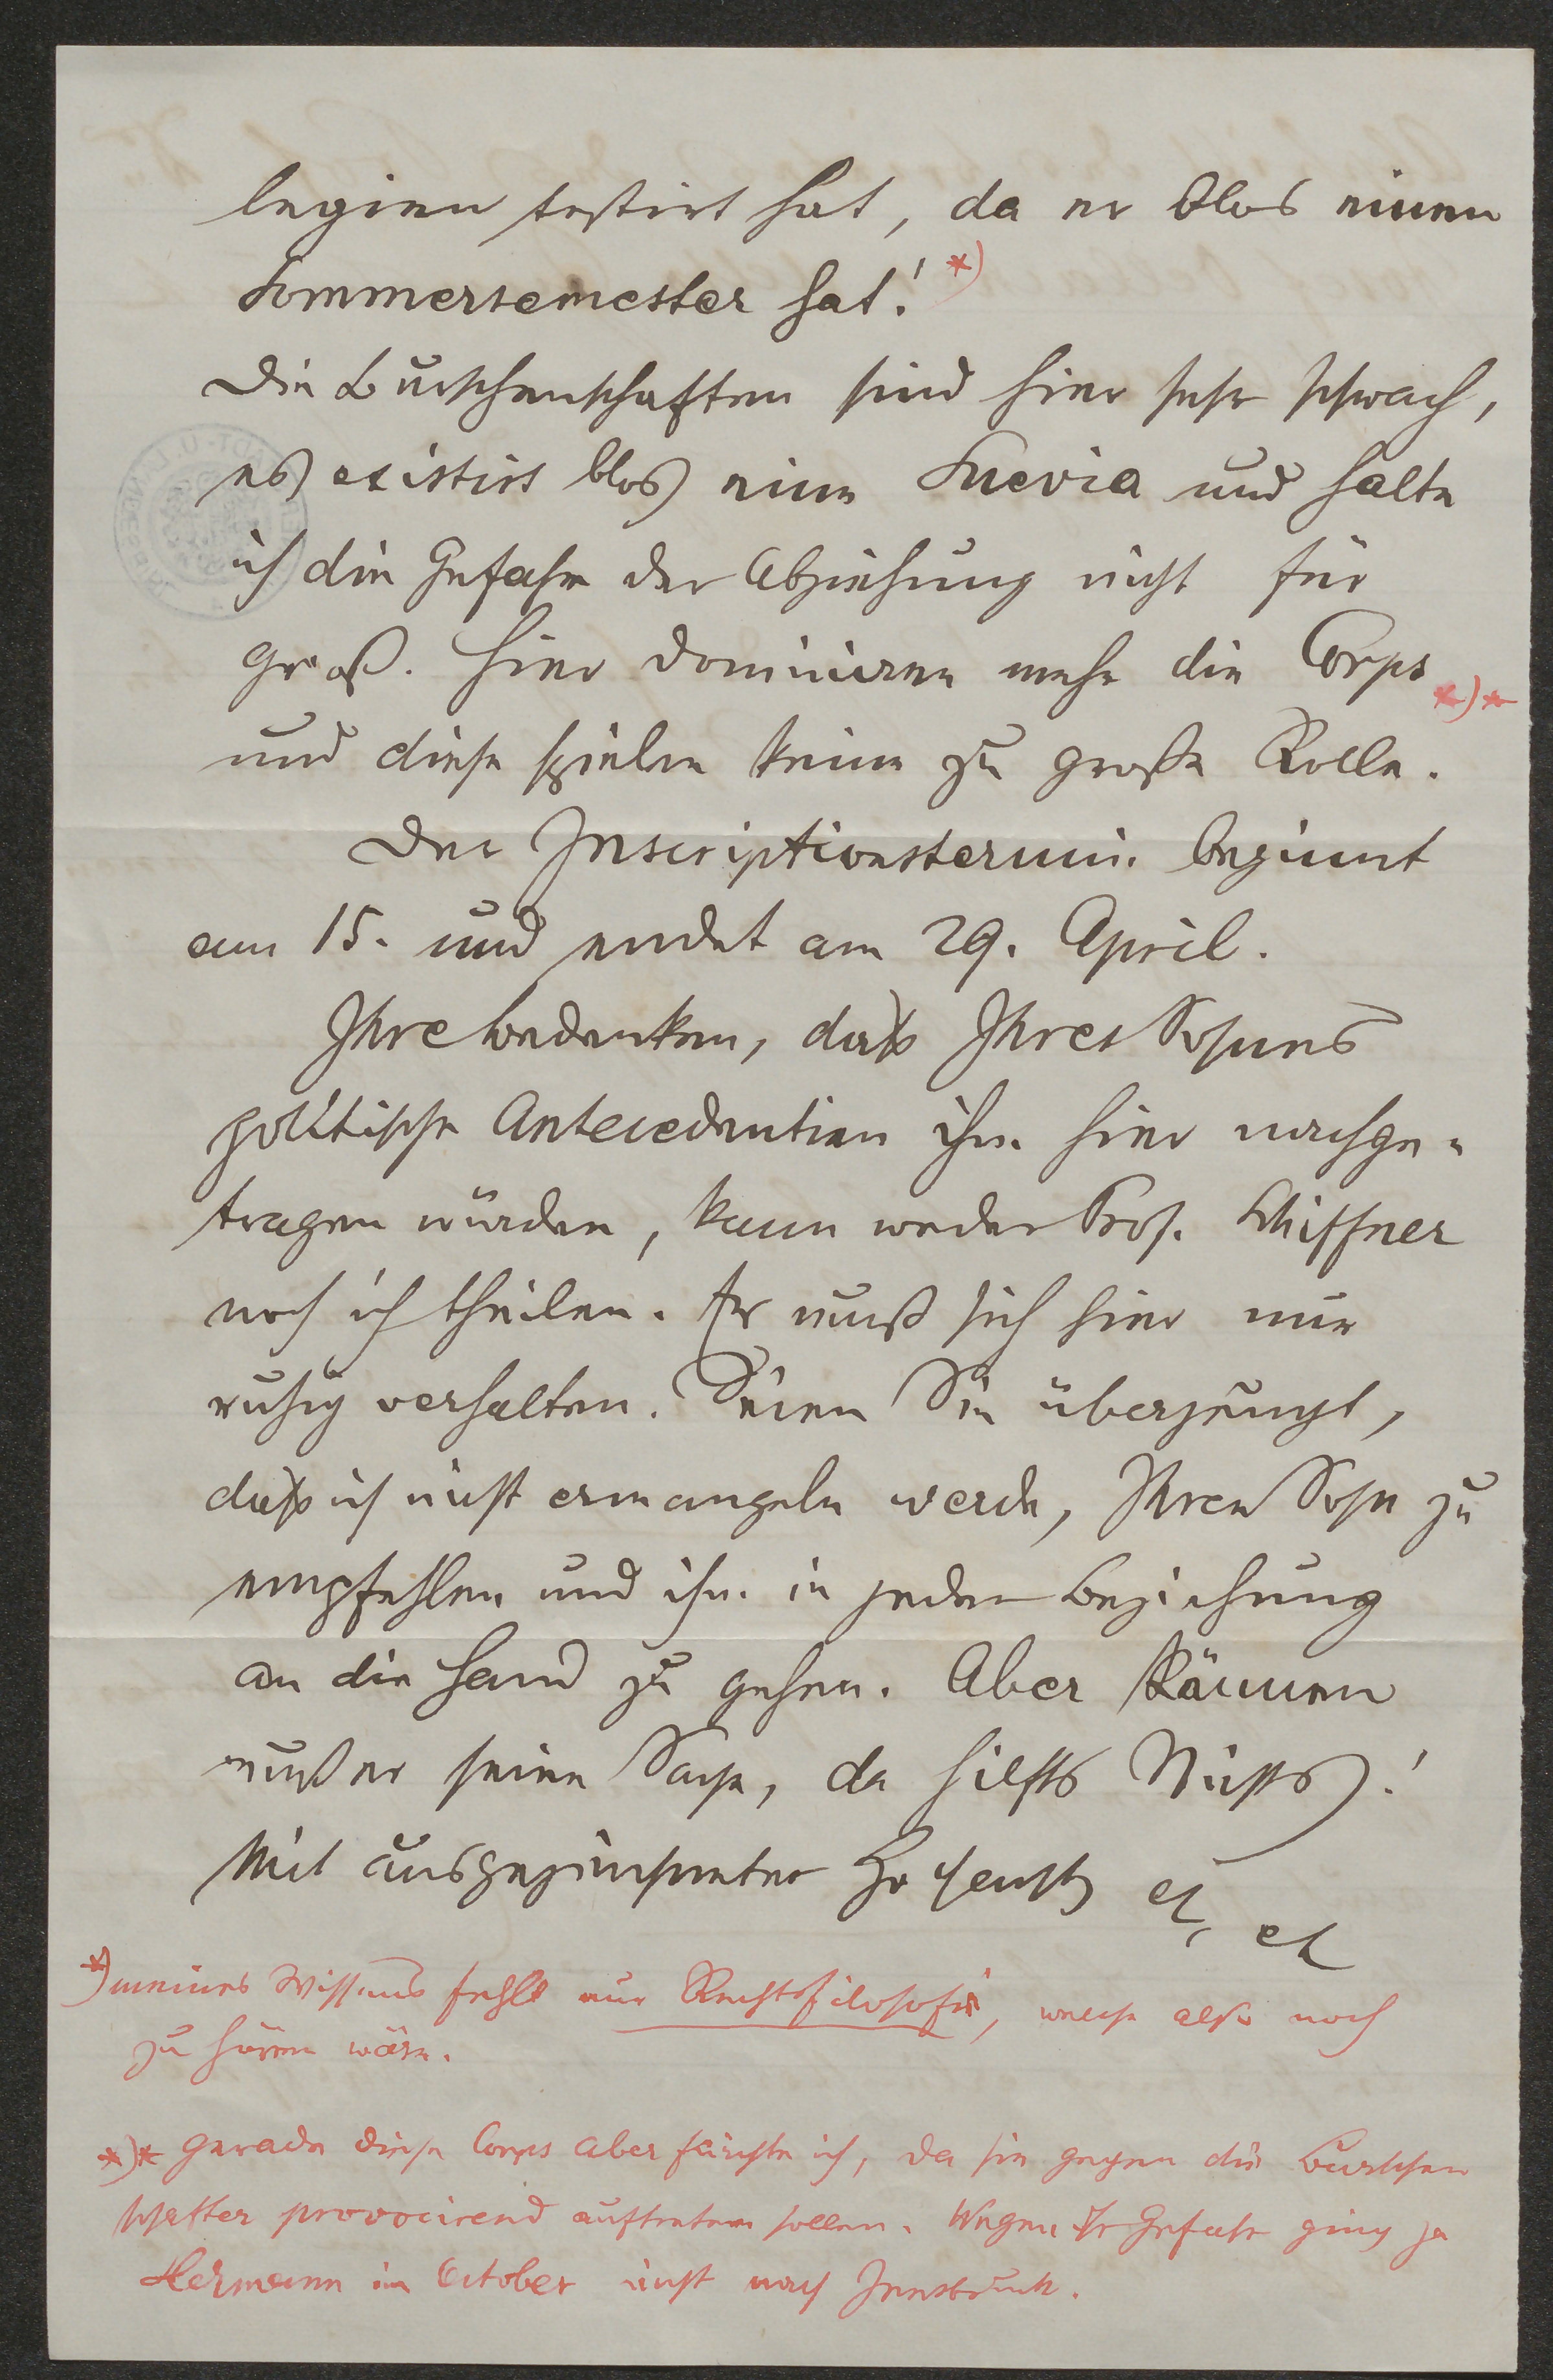 legien testirt hat, da er blos einen
Sommersemester hat! *)
Die Burschenschaften sind hier sehr schwach,
es existirt blos eine Suevia und halte
ich die Gefahr der Abziehung nicht für
groß. Hier dominiren mehr die Corps *)*
und diese spielen keine zu große Rolle.
Der Inscriptionstermin beginnt
am 15. und endet am 29. April.
Ihre Bedenken, daß Ihres Sohnes
politische Antecedentien ihm hier nachge-
tragen würden, kann weder Prof. Schiffner
noch ich theilen. Er muß sich hier nur
ruhig verhalten. Seien Sie überzeugt,
daß ich nicht ermangeln werde, Ihren Sohn zu
empfehlen und ihm in jeder Beziehung
an die Hand zu gehen. Aber können
muß er seine Sache, da hilfts Nichts!
Mit ausgezeichneter Hochacht et, et
*) meines Wissens fehlt nur Rechtsfilosofie, welche also noch
zu hören wäre.
*)* Gerade diese Corps aber fürchte ich, da sie gegen die Burschen
schafter provocirend auftreten sollen. Wegen dr Gefahr ging ja
Hermann im October nicht nach Innsbruck.